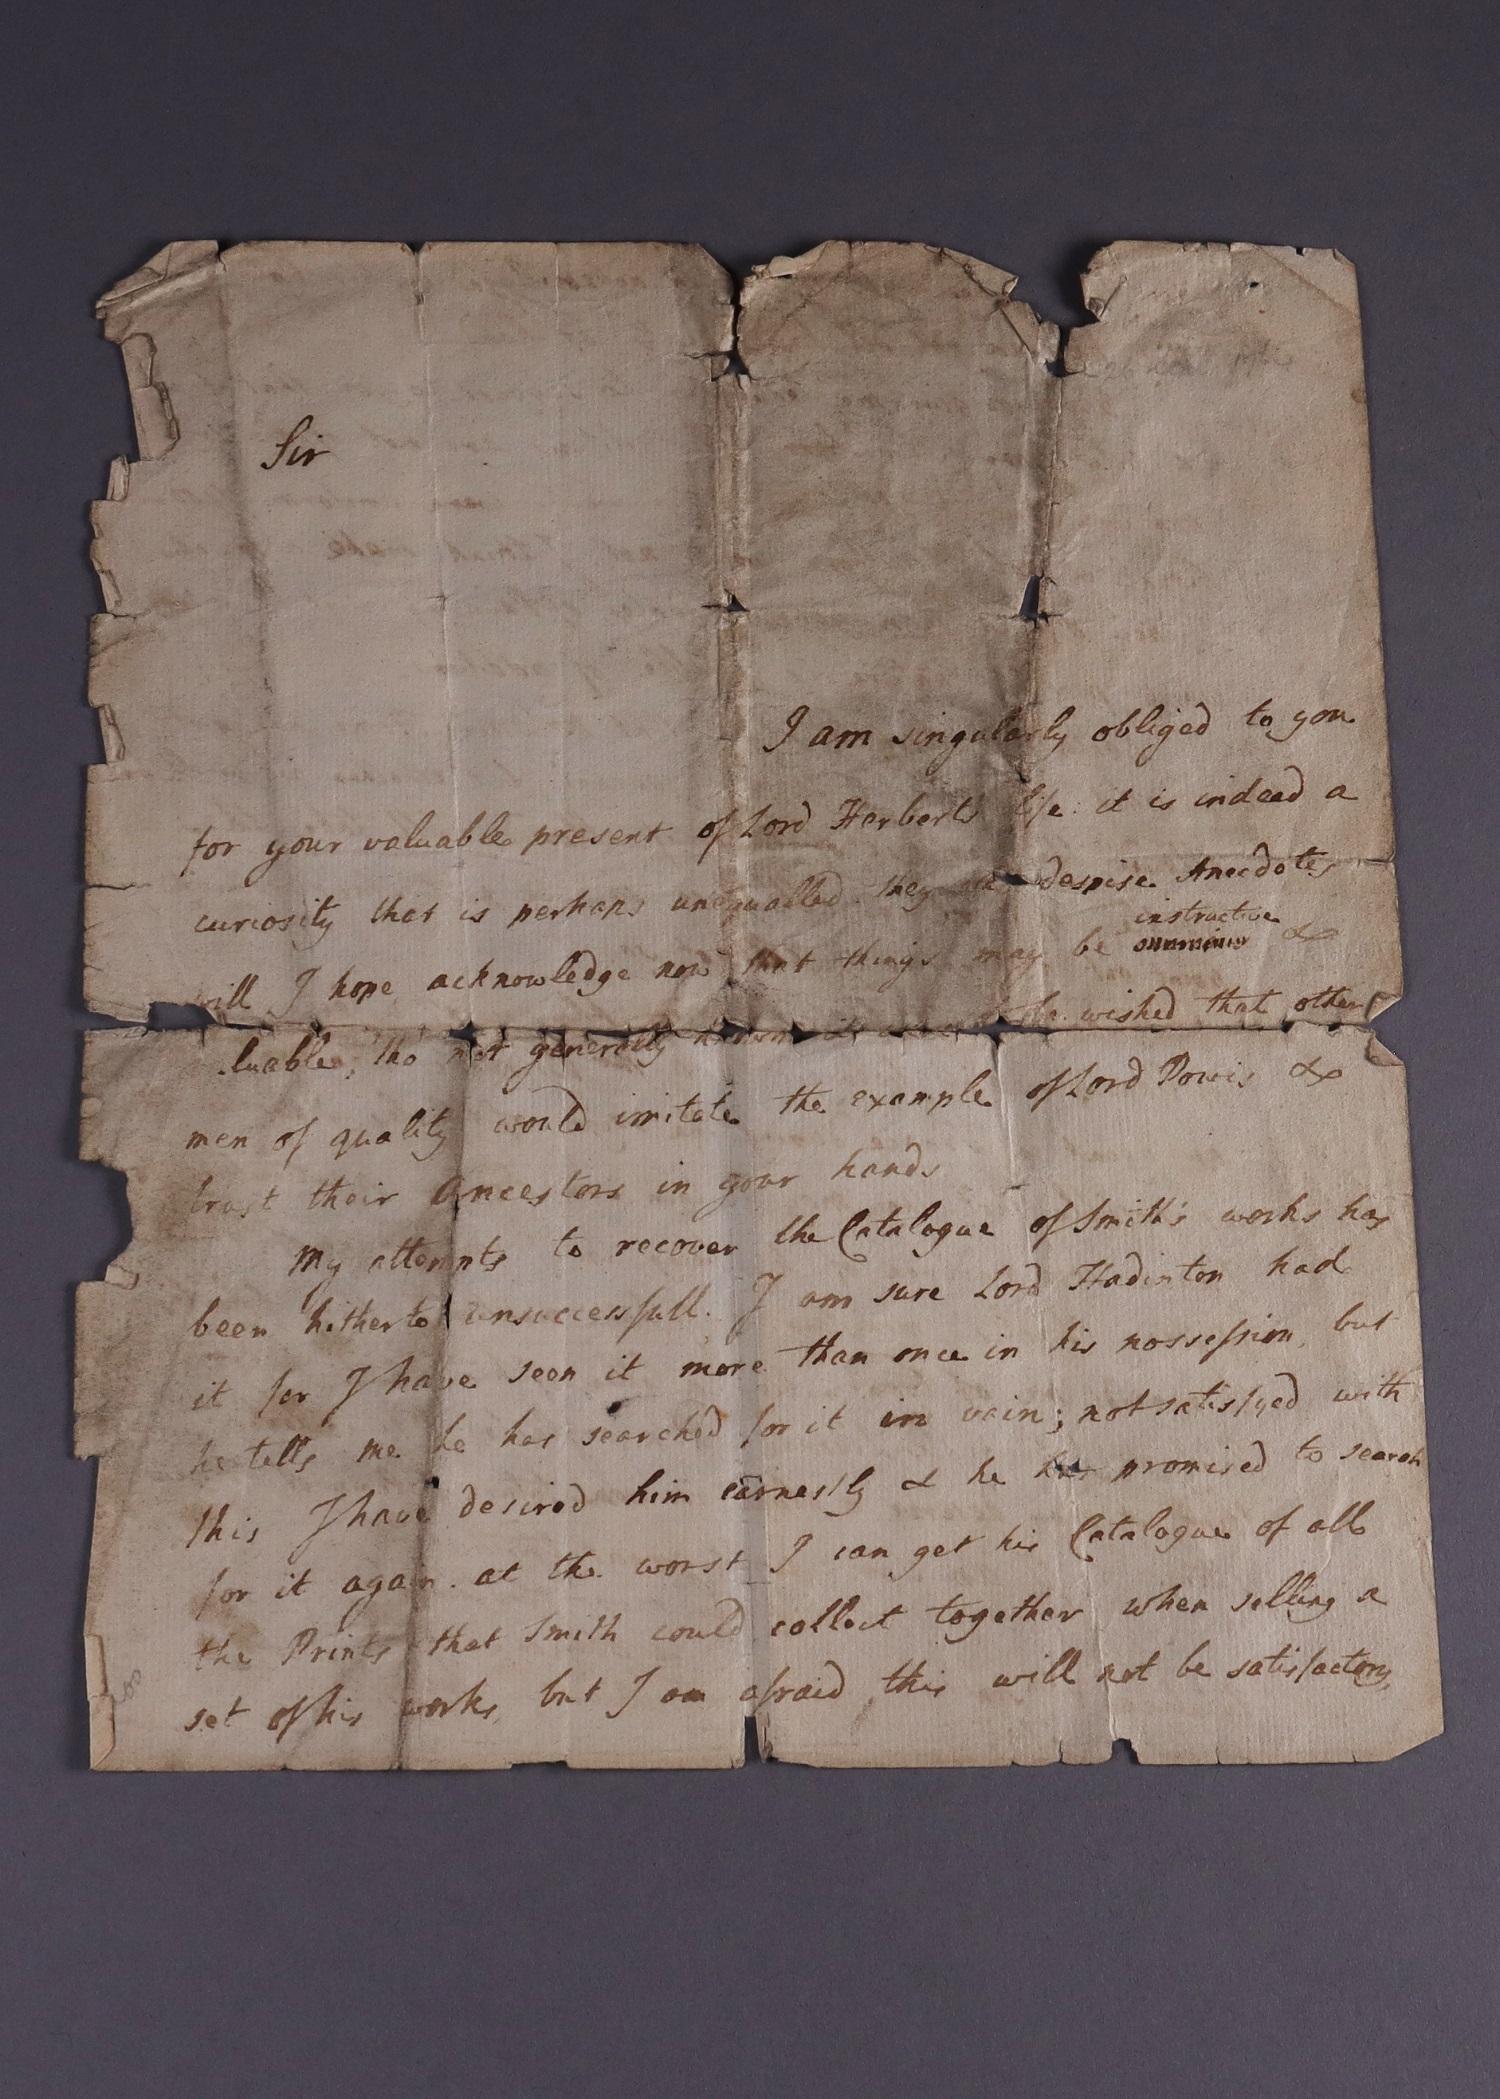 Sir
I am singularly obliged to you
for your valuable present of Lord Herberts life: it is indeed a
curiosity that is perhaps unequalled they despise Anecdotes
instructive
will I hope acknowledge now that things may be &
luable, tho not generally known it wished that other
men of quality would imitate the example of Lord Powis &
trust their Ancestors in your hands
My attempts to recover the Catalogue of Smith's works has
been hitherto unsuccessfull. I am sure Lord Hadinton had
it for I have seen it more than once in his possession, but
he tells me he has searched for it in vain; not satisfyed with
this I have desired him earnestly & he has promised to search
for it again. at the worst I can get his Catalogue of all
the Prints that Smith could collect together when selling a
set of his works, but I am afraid this will not be satisfactory,